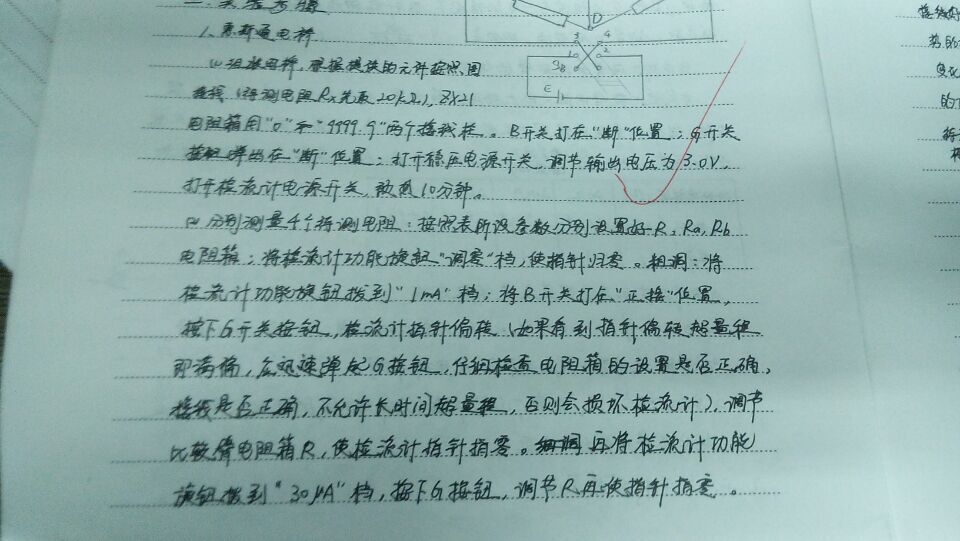 二.实验步骤
1.惠斯通电桥
D
3 4
1 2
SB
E
(1)组装电桥,根据提供的元件按照图
接线(待测电阻Rx先取20kΩ),ZX21
电阻箱用"0"和"9999.9"两个接线柱。B开关打在"断"位置;G开关
按钮弹出在"断"位置;打开稳压电源开关,调节输出电压为3.0V,
打开检流计电源开关,预热10分钟。
(2)分别测量4个待测电阻:按照表所设参数分别设置好R,Ra,Rb
电阻箱;将检流计功能旋钮"调零"档,使指针归零。粗调:将
检流计功能旋钮拨到"1mA"档;将B开关打在"正接"位置,
按下G开关按钮,检流计指针偏转(如果看到指针偏转超量程
即满偏,应迅速弹起G按钮,仔细检查电阻箱的设置是否正确,
接线是否正确,不允许长时间超量程,否则会损坏检流计),调节
比较臂电阻箱R,使检流计指针指零。细调再将检流计功能
旋钮拨到"30μA"档,按下G按钮,调节R再使指针指零。
接线
的